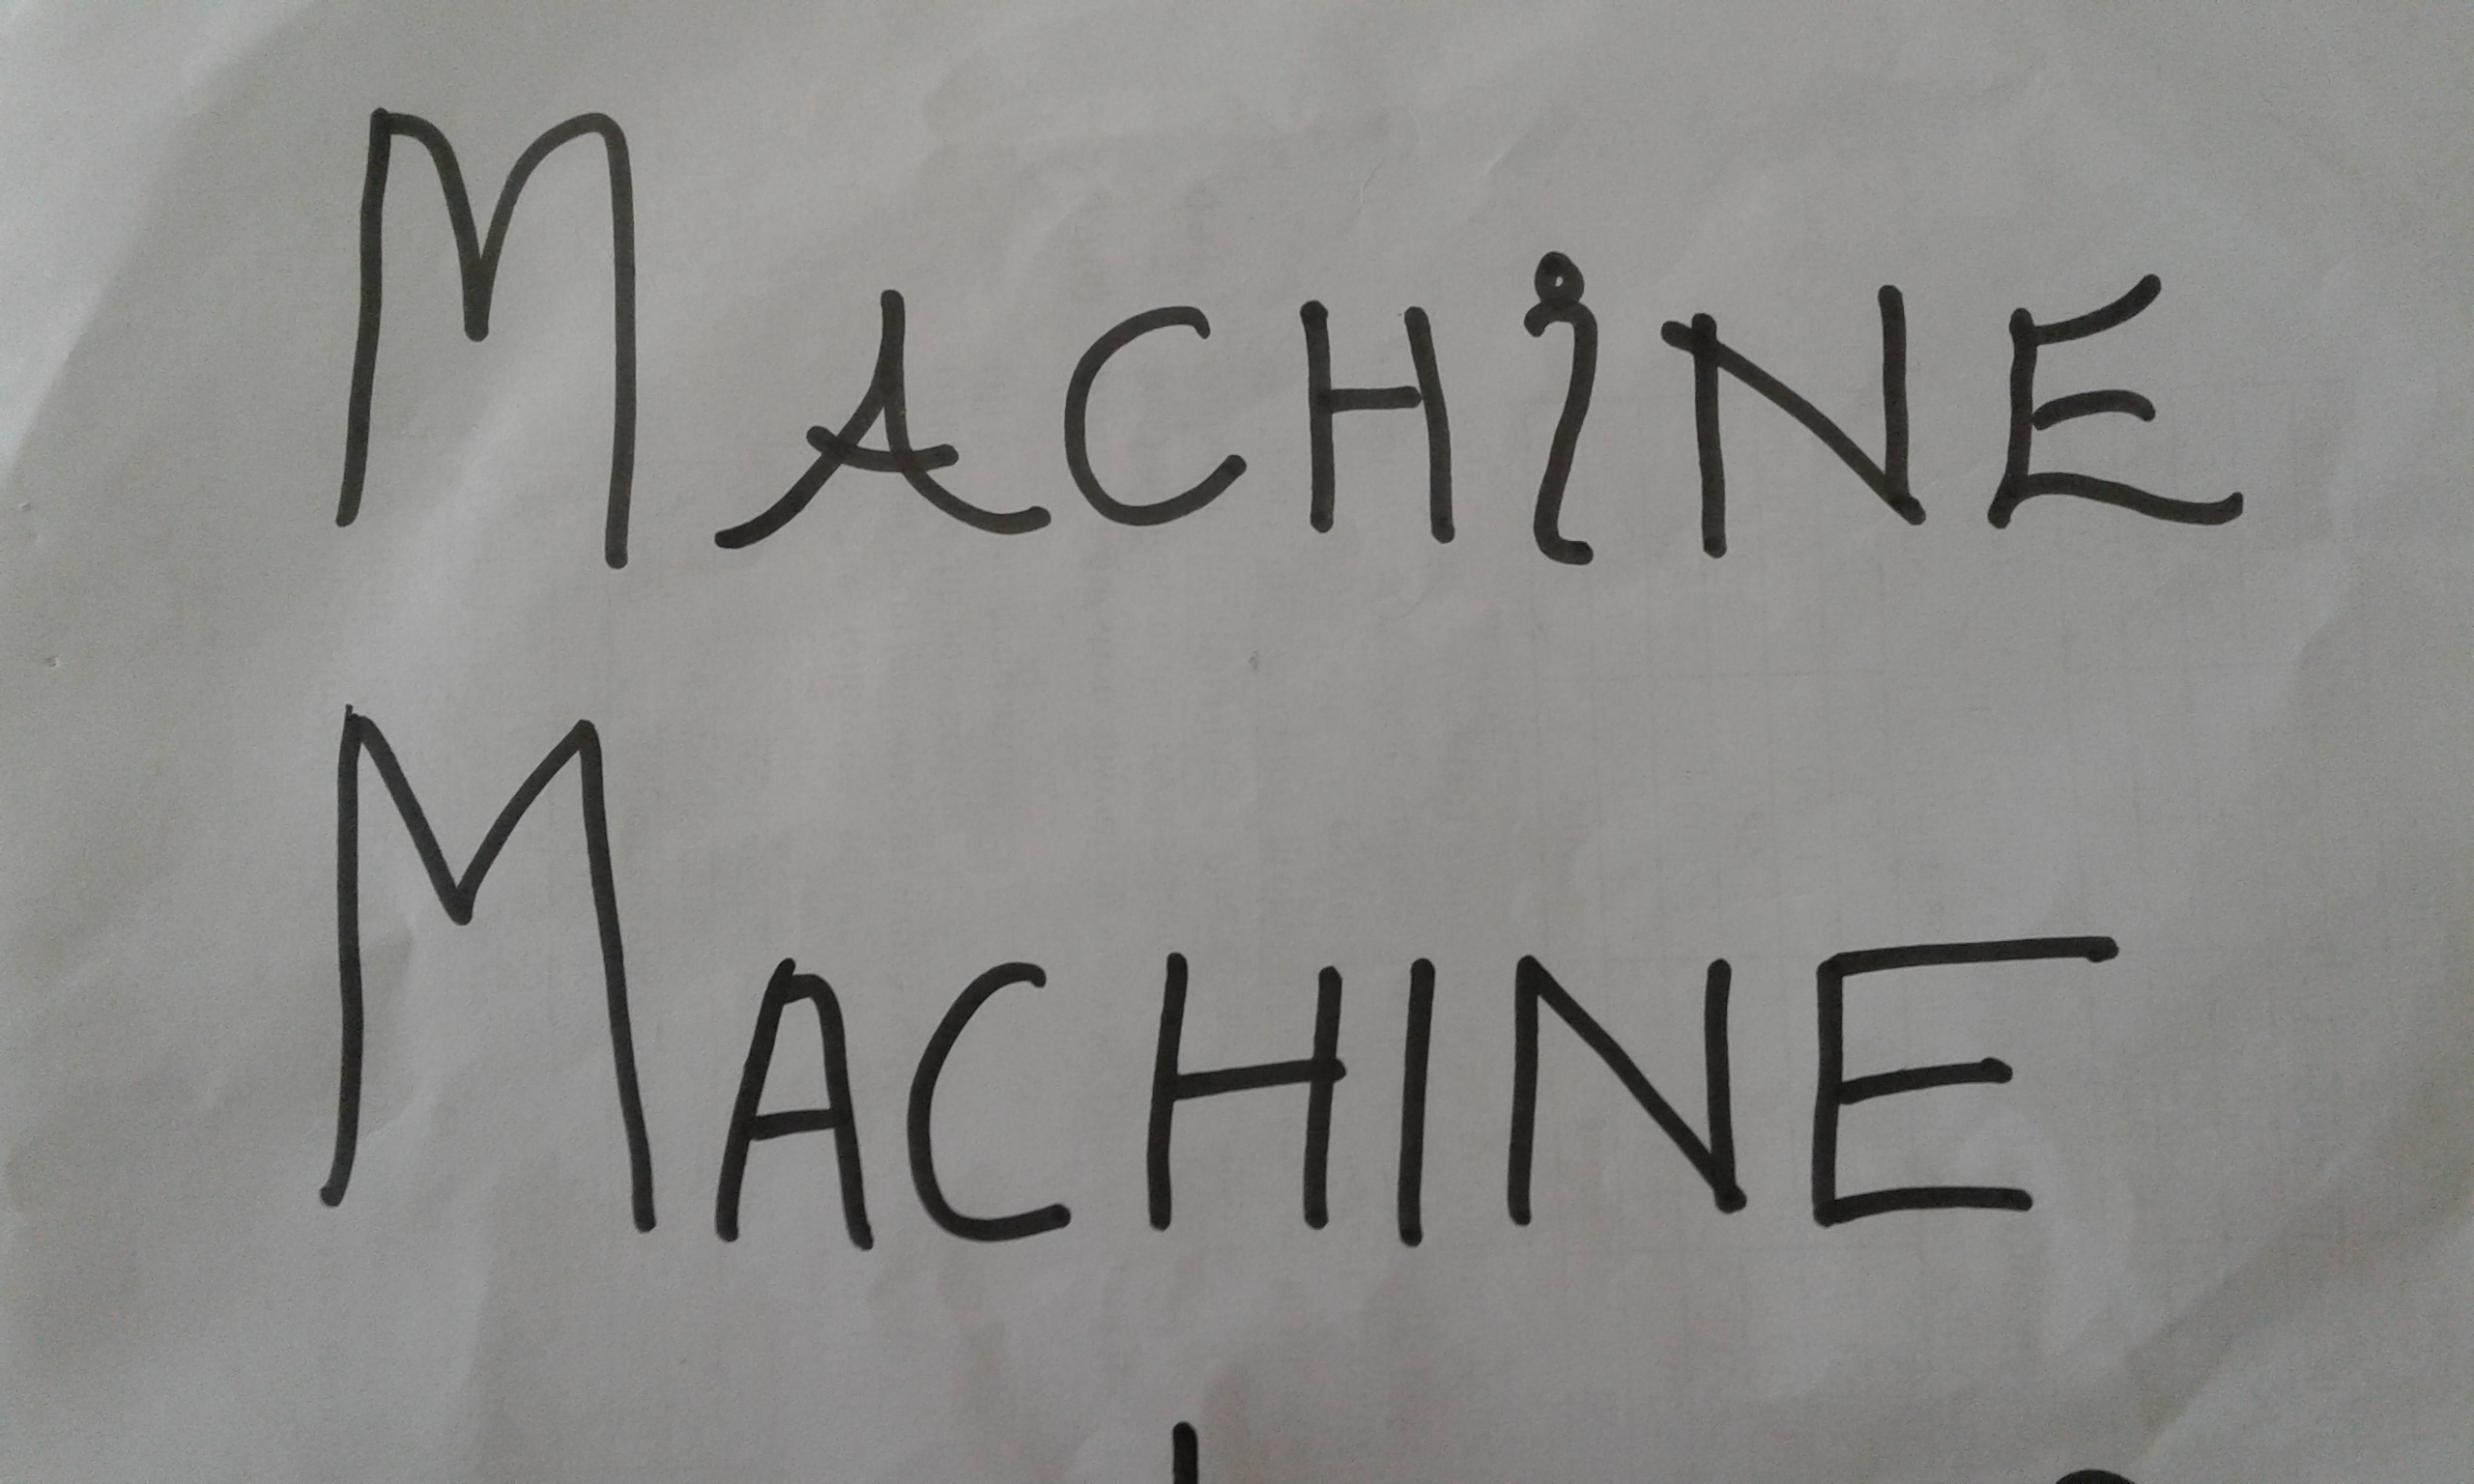 MACHiNE
MACHINE